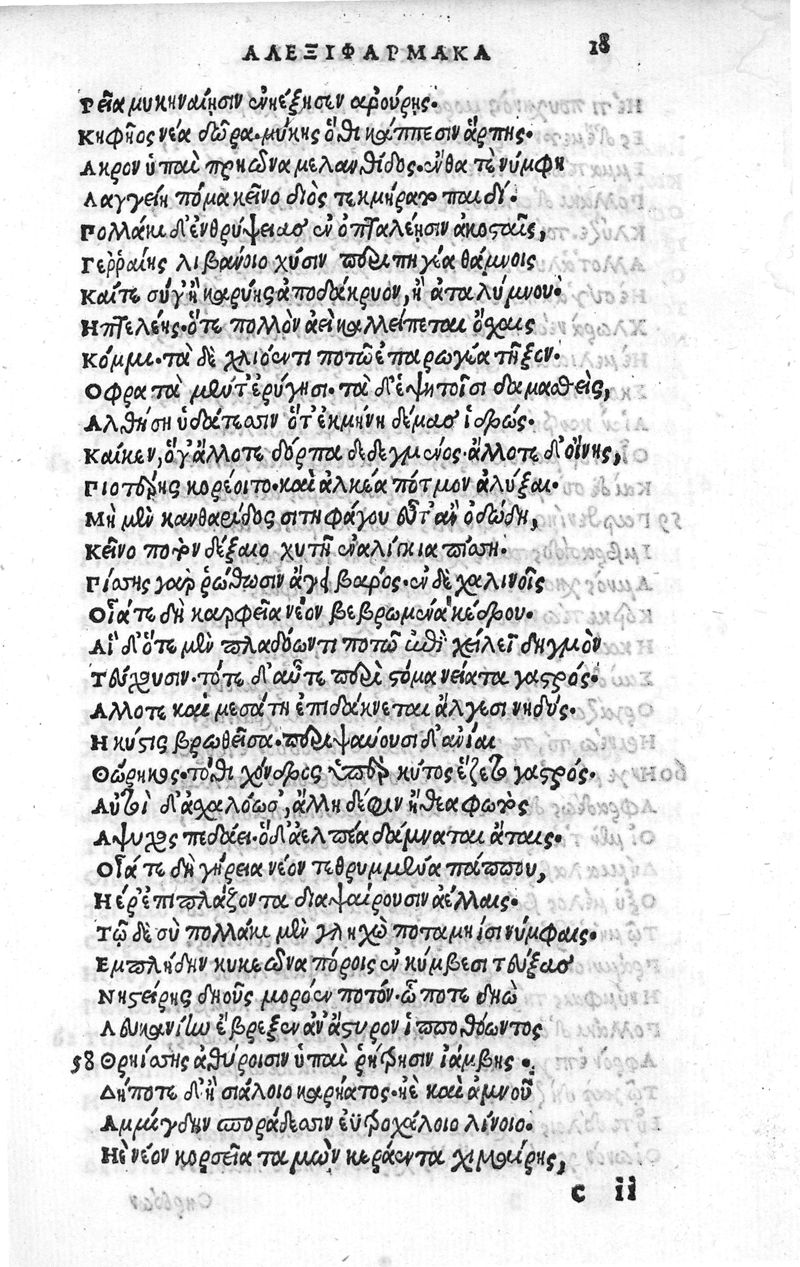 ΑΛΕΞΙΦΑΡΜΑΚΑ 18
Ρεῖα μυκηναίησιν ἐνηέξησεν ἀρούρης·
Κηφῆος νέα δῶρα· μύκης ὅθι κάππεσιν ἅρπης·
Ακρον ὑπαὶ πρηῶνα μελανθίδος· ἔνθα τε νύμφη
Λαγγείη πόμα κεῖνο διὸς τεκμήρατο παιδί·
Πολλάκι δ' ἐνθρύψειας ἐν ὀπταλέῃσιν ἀκοσταῖς,
Γερραίης λιβάνοιο χύσιν περιπηγέα θάμνοις
Καίτε σύγ' ἢ καρύης ἀποδάκρυον, ἢ ἀταλύμνου·
Η πτελέης· ὅτε πολλὸν ἀεὶ καλλείπεται ὄχαις
Κόμμι· τὰ δὲ χλιόεντι ποτῷ ἐπαρωγέα τῆξεν·
Οφρα τὰ μέν τ' ἐρύγησι· τὰ δ' ἑψητοῖσι δαμασθεὶς,
Αλθήσῃ ὑδάτεσσιν ὅτ' ἐκμήνῃ δέμας ἱδρώς·
Καίκεν, ὅγ' ἄλλοτε δόρπα δεδεγμένος· ἄλλοτε δ' οἴνης,
Πιοτέρης κορέοιτο· καὶ ἀκλέα πότμον ἀλύξαι·
Μὴ μὲν κανθαρίδος σιτηφάγου εὖτ' ἂν ὀδώδῃ,
Κεῖνο ποτὸν δέξαιο χυτῇ ἐναλίγκια πίσσῃ·
Πίσσης γὰρ ῥώθωσιν ἄγει βαρός· ἐν δὲ χαλινοῖς
Οἷά τε δὴ καρφεῖα νέον βεβρωμένα κέδρου·
Αἱ δ' ὁτὲ μὲν πλαδόωντι ποτῷ ἐπὶ χείλεϊ δηγμὸν
Τεύχουσιν· τότε δ' αὖτε περὶ στόμα νείατα γαστρός·
Αλλοτε καὶ μεσάτη ἐπιδάκνεται ἄλγεσι νηδύς·
Η κύστις βρωθεῖσα· περιψαύουσι δ' ἀνῖαι
Θώρηκος· τόθι χόνδρος ὑπὲρ κύτος ἕζετο γαστρός·
Αὐτοὶ δ' ἀχαλόωσ', ἄλη δέ φιν ἤθεα φωτὸς
Αψυχος πεδάει· ὁ δ' ἀελπέα δάμναται ἄταις·
Οἷά τε δὴ γήρεια νέον τεθρυμμένα πάππου,
Ηέρ' ἐπιπλάζοντα διαψαίρουσιν ἀέλλαις·
Τῷ δὲ σὺ πολλάκι μὲν γληχὼ ποταμηΐσι νύμφαις·
Εμπλήδην κυκεῶνα πόροις ἐν κύμβεσι τεύξας
Νηστείρης δηοῦς μορόεν ποτόν· ᾧ ποτε δηὼ
Λευκανίην ἔβρεξεν ἀν' ἄστυρον ἱπποθόωντος
58 Θρηίσσης ἀθύροισιν ὑπαὶ ῥήτρῃσιν ἰάμβης·
Δήποτε δ' ἢ σιάλοιο καρήατος· ἠὲ καὶ ἀμνοῦ
Αμμίγδην σποράδεσσιν ἐϋτροχάλοιο λίνοιο·
Ηὲ νέον κορσεῖα ταμὼν κεράεντα χιμαίρης,
c ii